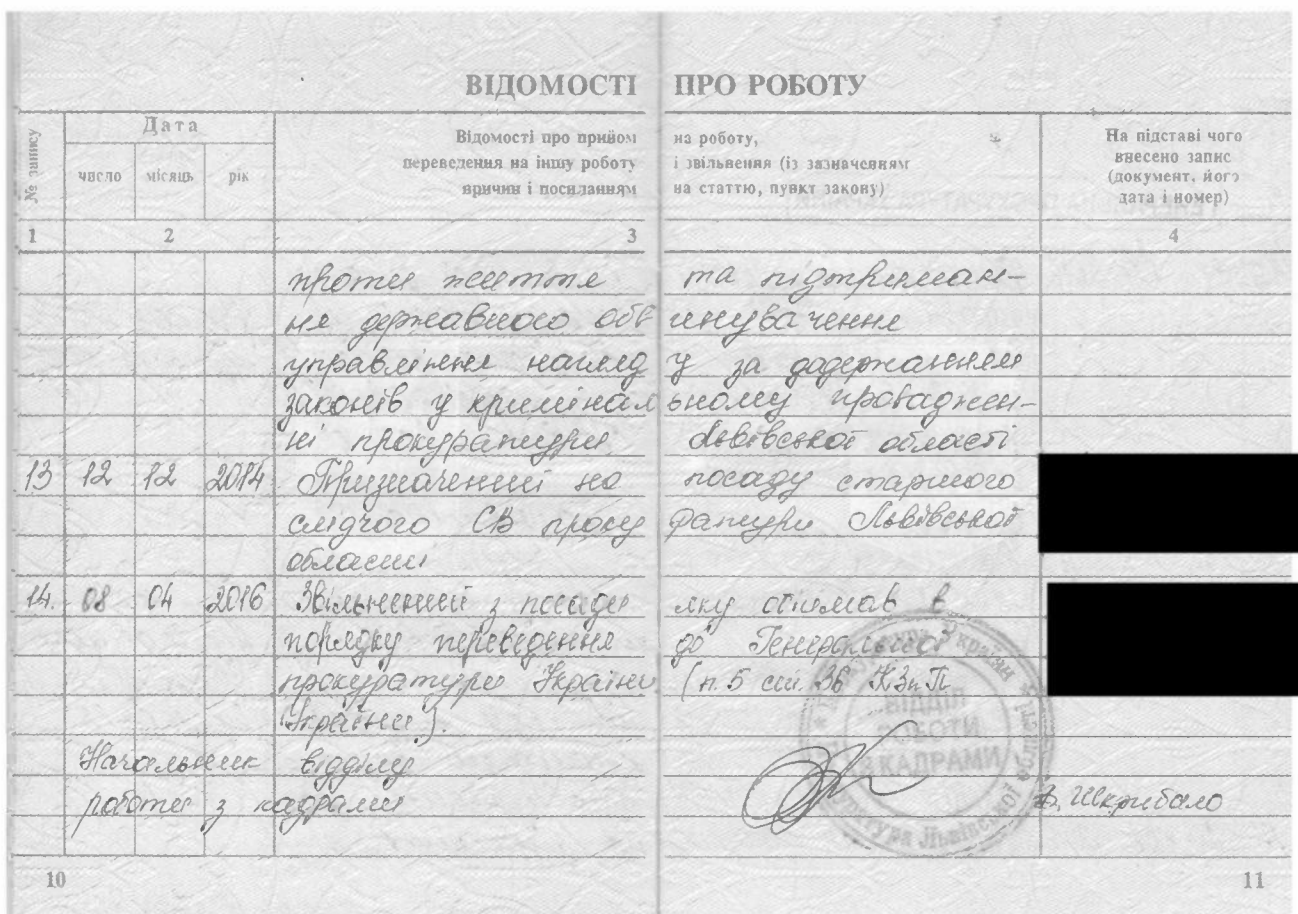 ВІДОМОСТІ ПРО РОБОТУ
№ запису
Дата
число місяць рік
Відомості про прийом на роботу,
переведення на іншу роботу і звільнення (із зазначенням
причин і посиланням на статтю, пункт закону)
На підставі чого
внесено запис
(документ, його
дата і номер)
1 2 3 4
проти життя та підтриман-
ня державного обвинувачення
управління нагляду за додержанням
законів у кримінальному проваджен-
ні прокуратури Львівської області
13 12 12 2014 Призначений на посаду старшого
слідчого СВ прокуратури Львівської
області
14. 08 04 2016 Звільнений з посади яку обіймав в
порядку переведення до Генеральної
прокуратури України (п. 5 ст. 36 КЗпП
України).
Начальник відділу
роботи з кадрами
ВІДДІЛ
РОБОТИ
З КАДРАМИ
Прокуратура Львівської області
Шкрибало
10
11